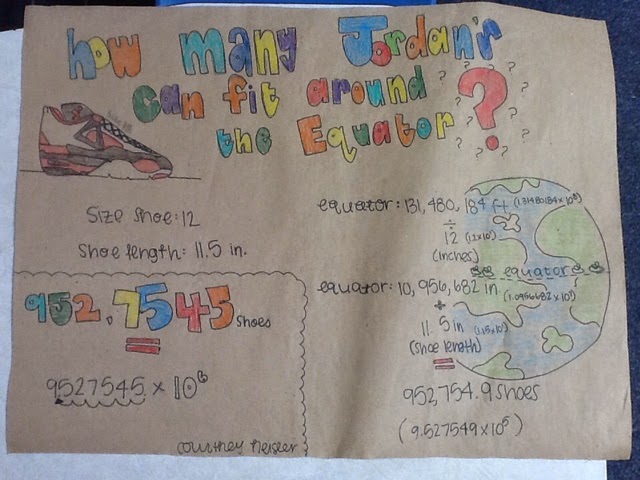 how many Jordan's
Can fit around
the Equator ?
Size shoe: 12
Shoe length: 11.5 in.
952.7545 shoes
=
9527545 x 10⁶
equator: 131,480,184 ft (1.31480184 x 10⁸)
÷
12 (12x10¹)
(inches)
equator
equator: 10,956,682 in (1.0956682 x 10⁷)
÷
11.5 in (1.15x10¹)
(shoe length)
=
952,754.9 shoes
(9.527549 x 10⁵)
Courtney